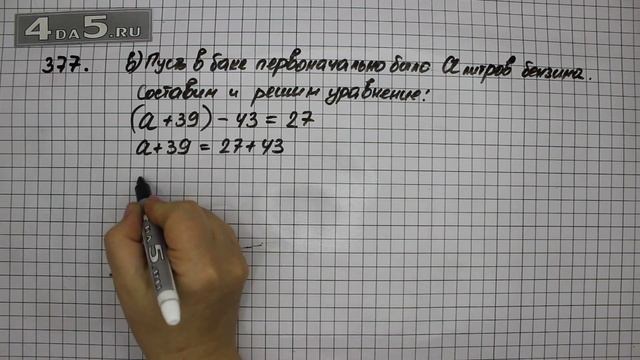 4DA5.RU
377. в) Пусть в баке первоначально было а литров бензина.
Составим и решим уравнение:
(а+39)-43=27
а+39=27+43